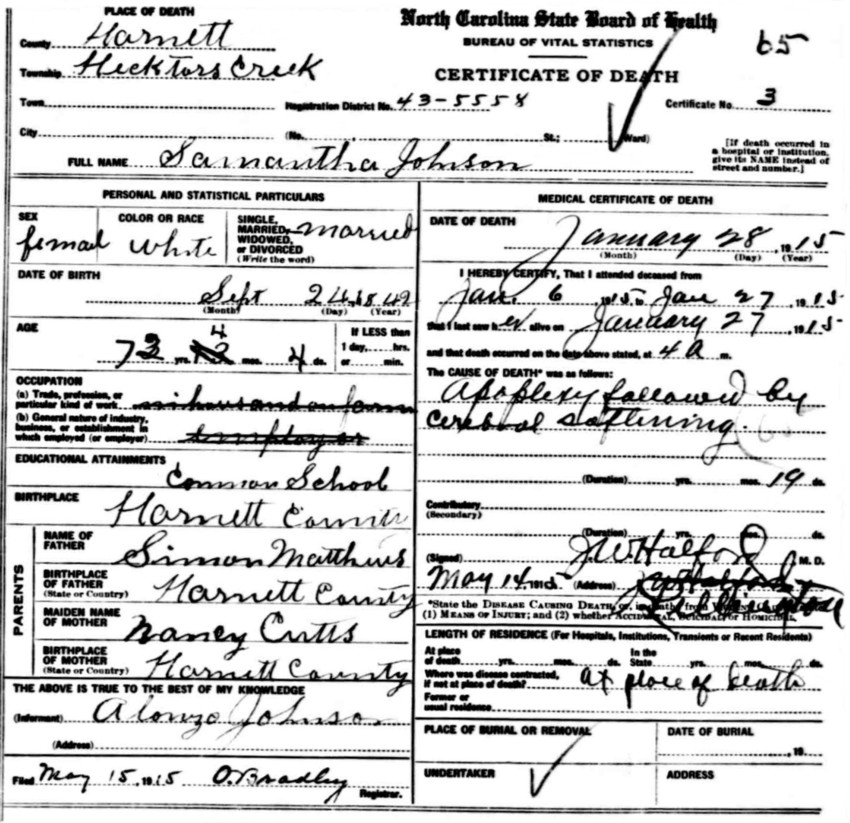 PLACE OF DEATH
North Carolina State Board of Health
BUREAU OF VITAL STATISTICS
CERTIFICATE OF DEATH
65
County Harnett
Township Hecktors Creek
Town
Registration District No. 43-5558
Certificate No. 3
City (No. St.; Ward)
[If death occurred in a hospital or institution, give its NAME instead of street and number.]
FULL NAME Samantha Johnson
PERSONAL AND STATISTICAL PARTICULARS
SEX femail
COLOR OR RACE White
SINGLE, MARRIED, WIDOWED, or DIVORCED (Write the word) married
DATE OF BIRTH
Sept 24, 1842
(Month) (Day) (Year)
AGE
73 yrs. 4 mos. 4 ds.
If LESS than 1 day, hrs. or min.
OCCUPATION
(a) Trade, profession, or particular kind of work
(b) General nature of industry, business, or establishment in which employed (or employer)
EDUCATIONAL ATTAINMENTS
Common School
BIRTHPLACE
Harnett County
PARENTS
NAME OF FATHER Simon Matthews
BIRTHPLACE OF FATHER (State or Country) Harnett County
MAIDEN NAME OF MOTHER Nancy Cutts
BIRTHPLACE OF MOTHER (State or Country) Harnett County
THE ABOVE IS TRUE TO THE BEST OF MY KNOWLEDGE
(Informant) Alonzo Johnson
(Address)
Filed May 15, 1915 O. Bradley
Registrar.
MEDICAL CERTIFICATE OF DEATH
DATE OF DEATH
January 28, 1915
(Month) (Day) (Year)
I HEREBY CERTIFY, That I attended deceased from
Jan. 6 1915, to Jan 27, 1915
that I last saw her alive on January 27, 1915
and that death occurred on the date above stated, at 4 a m.
The CAUSE OF DEATH* was as follows:
Apoplexy followed by
cerebral softining.
(Duration) yrs. mos. 19 ds.
Contributory (Secondary)
(Duration) yrs. mos. ds.
(Signed) J. W. Halford M. D.
May 14, 1915 (Address) Lillington
*State the DISEASE CAUSING DEATH, or, in deaths from VIOLENT CAUSES, state
(1) MEANS OF INJURY; and (2) whether ACCIDENTAL, SUICIDAL or HOMICIDAL.
LENGTH OF RESIDENCE (For Hospitals, Institutions, Transients or Recent Residents)
At place of death yrs. mos. ds. In the State yrs. mos. ds.
Where was disease contracted, if not at place of death? at place of death
Former or usual residence
PLACE OF BURIAL OR REMOVAL
DATE OF BURIAL
, 19
UNDERTAKER
ADDRESS